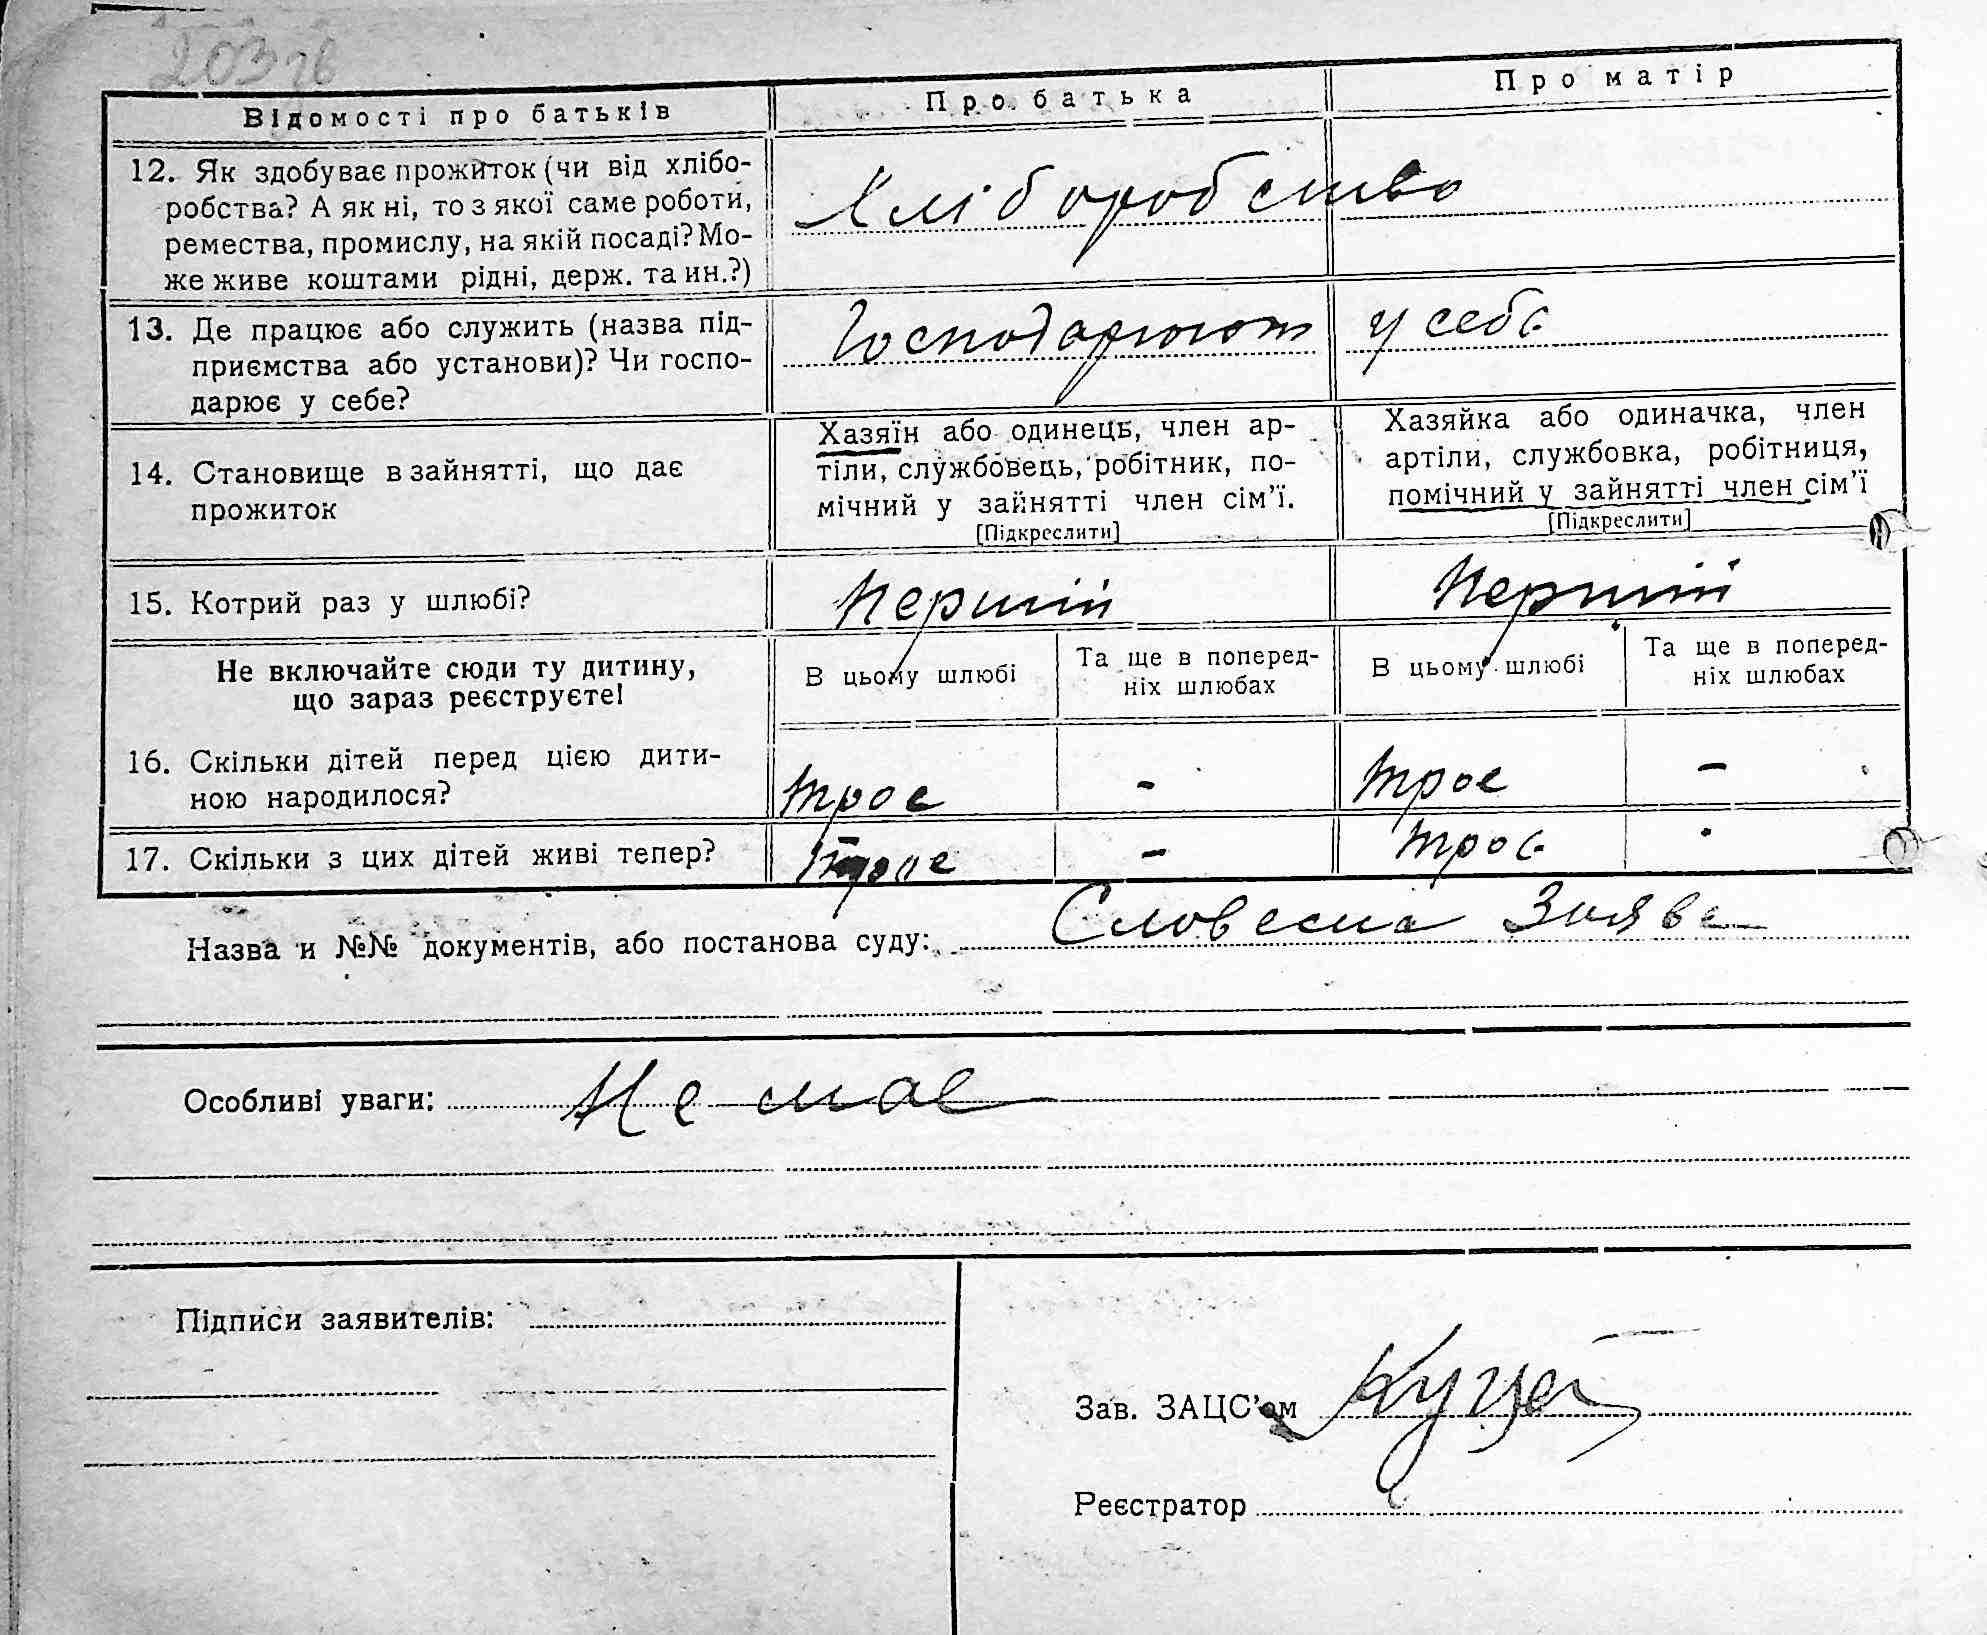 203 зв
Відомості про батьків
Про батька
Про матір
12. Як здобуває прожиток (чи від хлібо-
робства? А як ні, то з якої саме роботи,
ремества, промислу, на якій посаді? Мо-
же живе коштами рідні, держ. та ин.?)
Хліборобство
13. Де працює або служить (назва під-
приємства або установи)? Чи госпо-
дарює у себе?
Господарюют у себе
14. Становище в зайнятті, що дає
прожиток
Хазяїн або одинець, член ар-
тіли, службовець, робітник, по-
мічний у зайнятті член сім’ї.
[Підкреслити]
Хазяйка або одиначка, член
артіли, службовка, робітниця,
помічний у зайнятті член сім’ї
[Підкреслити]
15. Котрий раз у шлюбі?
Перший
Перший
Не включайте сюди ту дитину,
що зараз реєструєте!
В цьому шлюбі
Та ще в поперед-
ніх шлюбах
В цьому шлюбі
Та ще в поперед-
ніх шлюбах
16. Скільки дітей перед цією дити-
ною народилося?
трое - трое -
17. Скільки з цих дітей живі тепер?
трое - трое
Назва и №№ документів, або постанова суду: Словесна Заява
Особливі уваги: Не мае
Підписи заявителів:
Зав. ЗАЦС’ом
Реєстратор